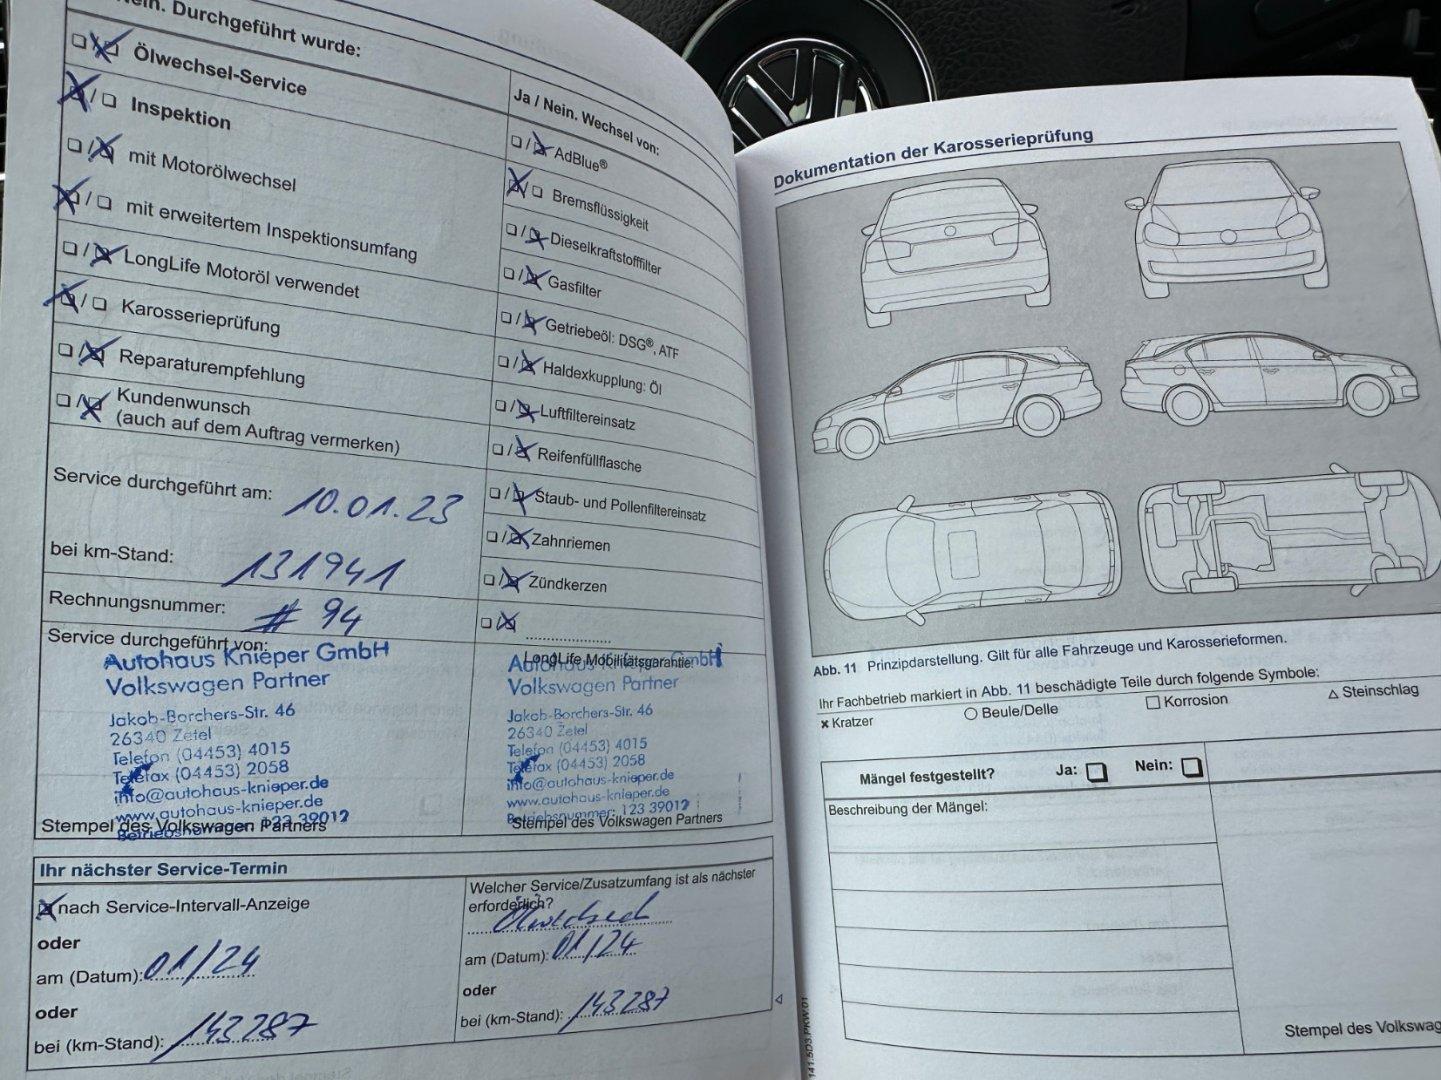 Nein. Durchgeführt wurde:
Ölwechsel-Service
Inspektion
mit Motorölwechsel
mit erweitertem Inspektionsumfang
LongLife Motoröl verwendet
Karosserieprüfung
Reparaturempfehlung
Kundenwunsch
(auch auf dem Auftrag vermerken)
Service durchgeführt am: 10.01.23
bei km-Stand: 131941
Rechnungsnummer: # 94
Service durchgeführt von:
Autohaus Knieper GmbH
Volkswagen Partner
Jakob-Borchers-Str. 46
26340 Zetel
Telefon (04453) 4015
Telefax (04453) 2058
info@autohaus-knieper.de
www.autohaus-knieper.de
Betriebsnummer: 123 39012
Stempel des Volkswagen Partners
Ja / Nein. Wechsel von:
AdBlue®
Bremsflüssigkeit
Dieselkraftstofffilter
Gasfilter
Getriebeöl: DSG®, ATF
Haldexkupplung: Öl
Luftfiltereinsatz
Reifenfüllflasche
Staub- und Pollenfiltereinsatz
Zahnriemen
Zündkerzen
LongLife Mobilitätsgarantie
Autohaus Knieper GmbH
Volkswagen Partner
Jakob-Borchers-Str. 46
26340 Zetel
Telefon (04453) 4015
Telefax (04453) 2058
info@autohaus-knieper.de
www.autohaus-knieper.de
Betriebsnummer: 123 39012
Stempel des Volkswagen Partners
Ihr nächster Service-Termin
nach Service-Intervall-Anzeige
oder
am (Datum): 01/24
oder
bei (km-Stand): 143287
Welcher Service/Zusatzumfang ist als nächster
erforderlich?
Ölwechsel
am (Datum): 01/24
oder
bei (km-Stand): 143287
141.5D3.PKW.01
Dokumentation der Karosserieprüfung
Abb. 11 Prinzipdarstellung. Gilt für alle Fahrzeuge und Karosserieformen.
Ihr Fachbetrieb markiert in Abb. 11 beschädigte Teile durch folgende Symbole:
Kratzer
Beule/Delle
Korrosion
Steinschlag
Mängel festgestellt? Ja: Nein:
Beschreibung der Mängel:
Stempel des Volkswag